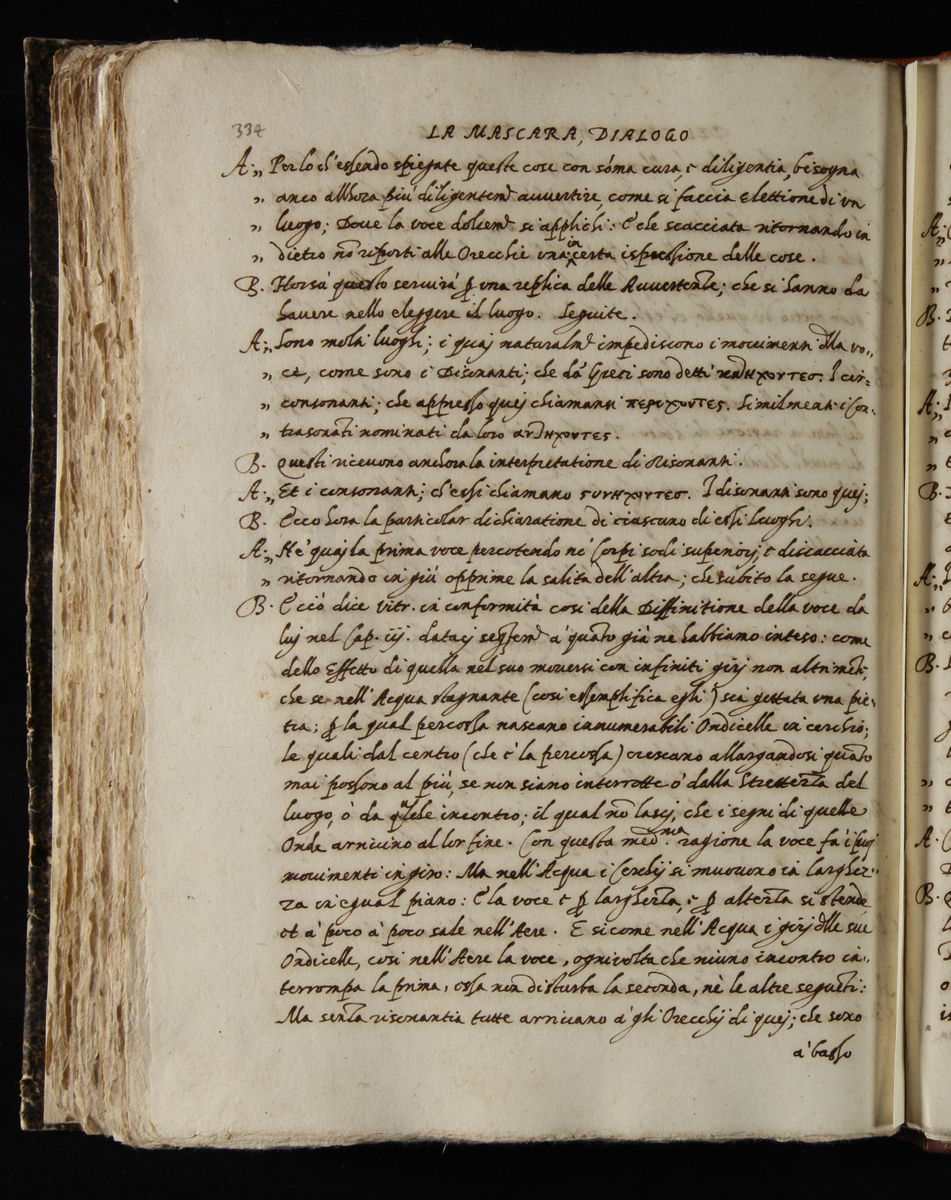 334
LA MASCARA, DIALOGO
A:,, Perlo ch'essendo spiegate queste cose con sóma cura, e diligentia, bisogna
,, anco allhora più diligentem.e auuertire, come si faccia Elettione di vn
,, luogo; Doue la voce dolcem.e si applichi: E che scacciata ritornando in
,, dietro nõ riporti alle Orecchie una in certa ispressione delle cose.
B. Horsù questo seruirà p una replica delle Auuertenze; che si hanno da
hauere nello eleggere il luogo. Seguite.
A:,, Sono molti luoghi; i quaj naturalm.e impediscono i mouimenti dlla vo,,
,, ce, come sono i Disonanti; che da' Greci sono detti ΚΑΤΗΧΟΥΝΤΕΣ. I cir-
,, consonanti; che appresso quej chiamansi περιηχουντες. Similmenti i Con-
,, trasonãti nominati da loro αντηχουντες.
B. Questi riceuono anchora la interpretatione di Risonanti.
A:,, Et i consonanti; ch'essi chiamano συνηχουντεσ. I disonanti sono quej;
B. Ecco hora la particolar dichiaratione di ciascuno di essi Luoghi.
A:,, Ne' quaj la prima voce percotendo ne' Corpi sodi superiorj, e discacciata
,, ritornando in giù opprime la salita dell'altra; che subito la segue.
B. E ciò dice Vitr. in conformità cosi della Diffinitione della voce da
luj nel Cap. iij. dataci seg.tem.e à quãto già ne habbiamo inteso: come
dello Effetto di quella nel suo mouersi con infiniti girj non altrimẽti,
che se nell'Acqua stagnante (cosi essemplifica egli) sia gettata una pie-
tra; p la qual percossa nascano innumerabili Ondicelle in cerchio;
le quali dal centro (che è la percossa) crescano allargandosi quãto
mai possono al più, se non siano interrotte ò dalla Strettezza del
luogo, ò da q.alche incontro; il qual nõ lascj, che i segni di quelle
Onde arriuino al lor fine. Con questa med.ma ragione la voce fà i suoj
mouimenti in giro: Ma nell'Acqua i Cerchij si muouono in larghez-
za in egual piano: E la voce e p larghezza, e p altezza si stende
et à poco à poco sale nell'Aere. E sicome nell'Acqua i girj dlle sue
Ondicelle, cosi nell'Aere la voce, ogni volta che niuno incontro in-
terrompa la prima, essa non disturba la seconda, nè le altre seguẽti:
Ma senza risonantia tutte arriuano à gli Orecchij di quej; che sono
à basso